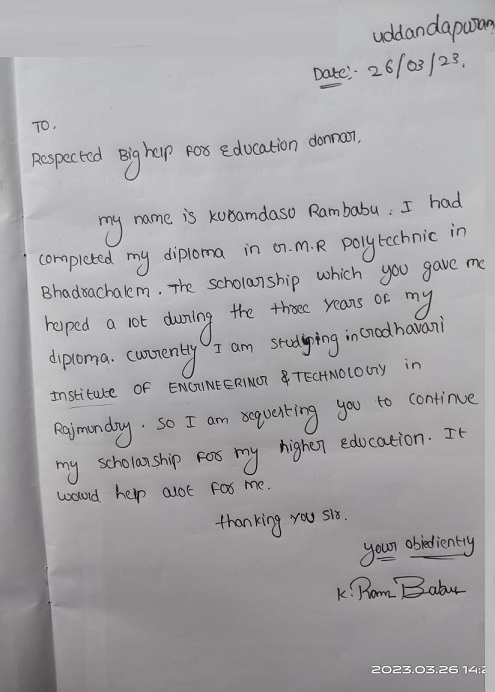 uddandapuram
Date:- 26/03/23.
TO,
Respected Big help For Education donnar,
my name is kuramdasu Rambabu. I had
completed my diploma in G.M.R polytechnic in
Bhadrachalem. The scholarship which you gave me
helped a lot during the three years of my
diploma. currently I am studying in Godhavari
Institute OF ENGINEERING & TECHNOLOGY in
Rajmundry. so I am requesting you to continue
my scholarship for my higher education. It
would help alot for me.
thanking you sir.
your obidiently
k. Ram Babu
2023.03.26 14:2